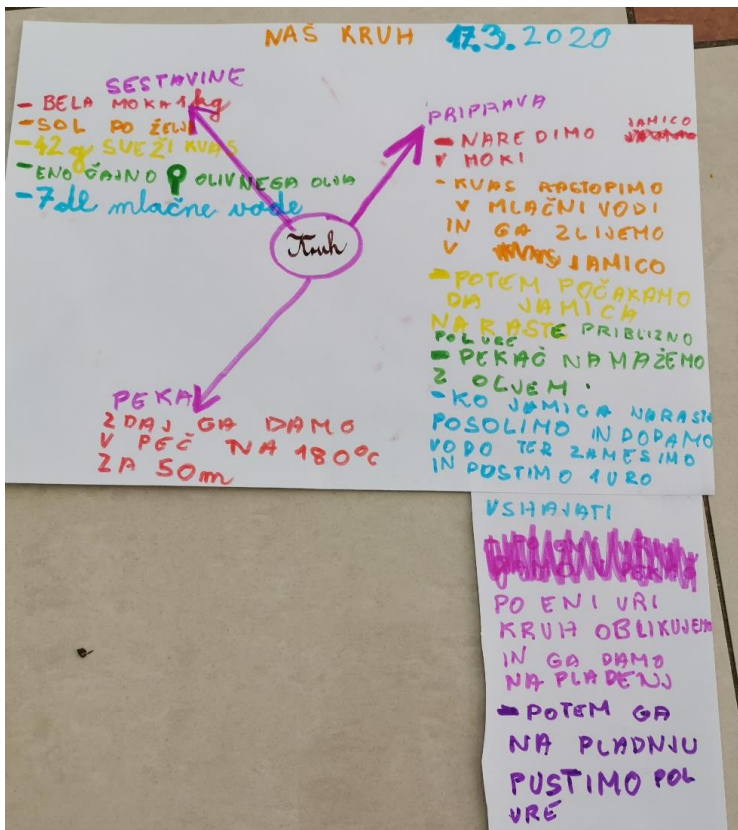 NAŠ KRUH 17.3.2020
SESTAVINE
- BELA MOKA 1 kg
- SOL PO ŽELJI
- 42 g SVEŽI KVAS
- ENO ČAJNO OLIVNEGA OLJA
- 7 dl mlačne vode
Kruh
PRIPRAVA
- NAREDIMO JAMICO
V MOKI
- KVAS RASTOPIMO
V MLAČNI VODI
IN GA ZLIJEMO
V JAMICO
- POTEM POČAKAMO
DA JAMICA
NARASTE PRIBLIŽNO
POL URE
- PEKAČ NAMAŽEMO
Z OLJEM.
- KO JAMICA NARASTE
POSOLIMO IN DODAMO
VODO TER ZAMESIMO
IN POSTIMO 1 URO
VSHAJATI
PO ENI URI
KRUH OBLIKUJEMO
IN GA DAMO
NA PLADENJ
- POTEM GA
NA PLADNJU
PUSTIMO POL
URE
PEKA
ZDAJ GA DAMO
V PEČ NA 180°C
ZA 50m